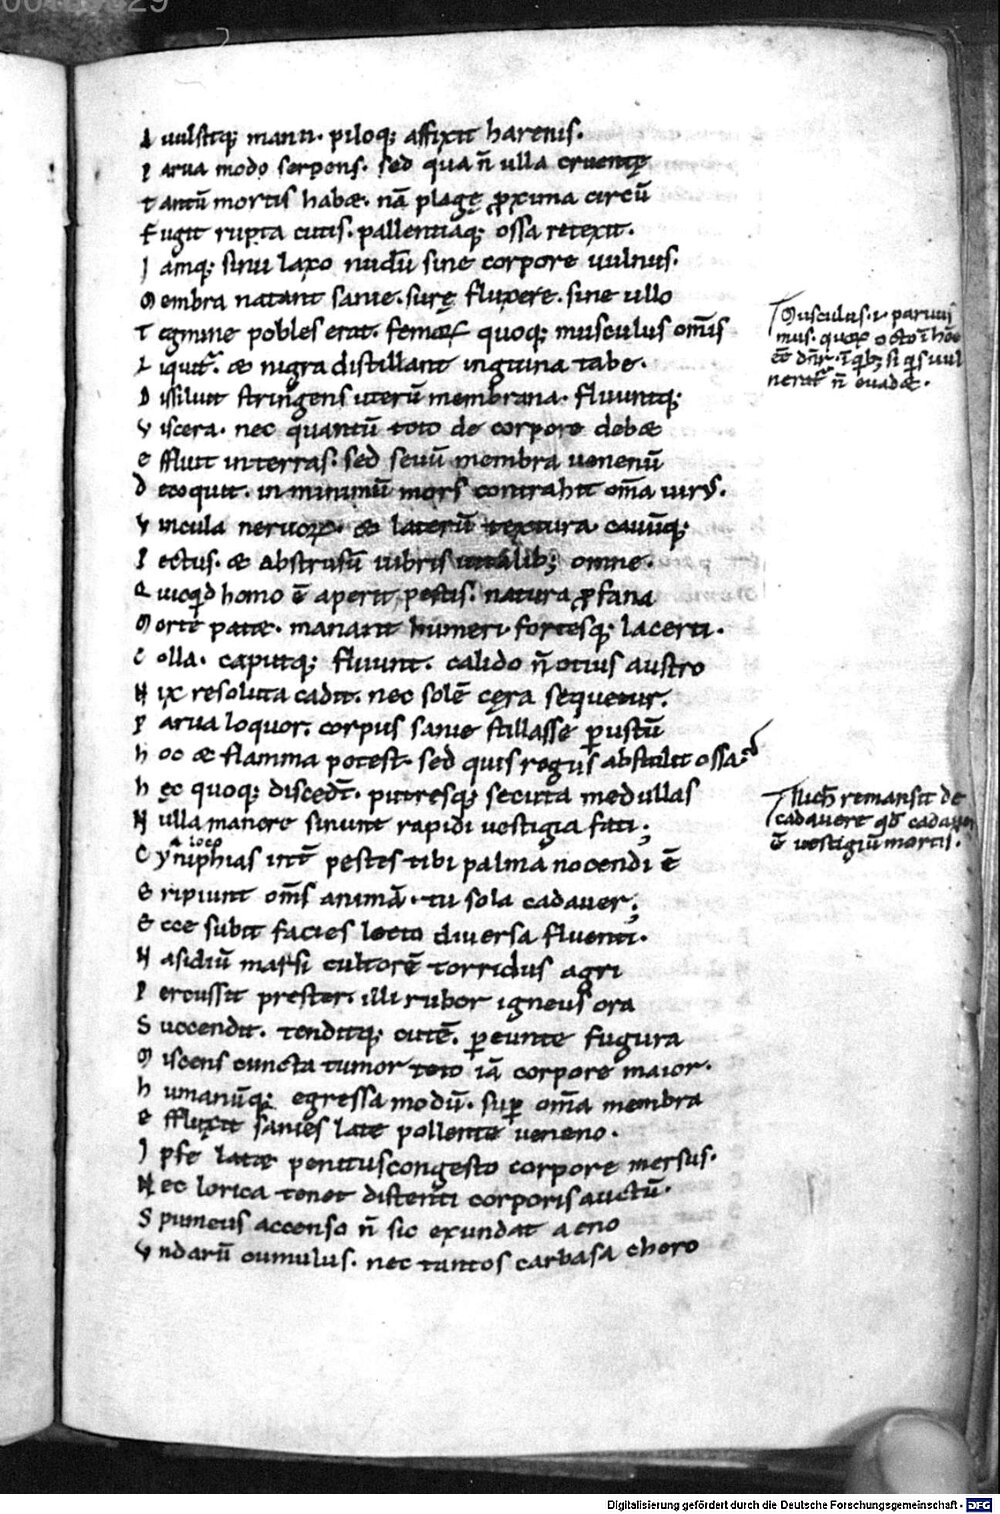 A uulsitq; manu. piloq; affixit harenis.
P arua modo serpens. sed qua n̄ ulla cruentę
T antū mortis habæ. nā plagę ꝓxima circū
F ugit rupta cutis. pallentiaq; ossa retexit.
I amq; sinu laxo nudū sine corpore uulnus.
M embra natant sanie. surę fluxere. sine ullo
T egmine poples erat. femoꝝ quoq; musculus om̄is
L iquit᷑. æ nigra distillant inguina tabe.
D issiluit stringens uterū membrana. fluuntq;
V iscera. nec quantū toto de corpore debæ
E ffluit in terras. sed seuū membra uenenū
D ecoquit. in minimū mors contrahit om̄a uirꝰ.
V incula neruoꝝ. æ laterū textura. cauūq;
P ectus. æ abstrusū uibris uitalib; omne.
Q uicqid homo ē aperit pestis. natura ꝓfana
M orte patæ. manant humeri fortesq; lacerti.
C olla. caputq; fluunt. calido n̄ otius austro
N ix resoluta cadit. nec solē cęra sequetur.
P arua loquor. corpus sanie stillasse ꝑustū
h oc æ flamma potest. sed quis rogus abstulit ossa.
h ęc quoq; discedt̄. putresq; secuta medullas
N ulla manere sinunt rapidi uestigia fati;
a loco
C yniphias int̄ pestes tibi palma nocendi ē
E ripiunt om̄s animā. tu sola cadauer;
E cce subit facies leto diuersa fluenti.
N asidiū marsi cultorē torridus agri
P ercussit prester. illi rubor igneus ora
S uccendit. tenditq; cutē. ꝑeunte fugura
M iscens cuncta tumor toto iā corpore maior.
h umanūq; egressa modū. suꝑ om̄a membra
E ffluxit sanies late pollente ueneno.
I pse latæ penitus congesto corpore mersus.
N ec lorica tenet distenti corporis auctū.
S pumeus accenso n̄ sic exundat aeno
V ndarū cumulus. nec tantos carbasa choro
Musculus. i. paruus
mus. quoꝝ octo ī hōe
ēē dn̄r. ī qib; si qis uul
nerat᷑ n̄ euadæ.
Nich̄ remansit de
cadauere qd̄ cadauer
ē uestigiū mortis.
Digitalisierung gefördert durch die Deutsche Forschungsgemeinschaft - DFG